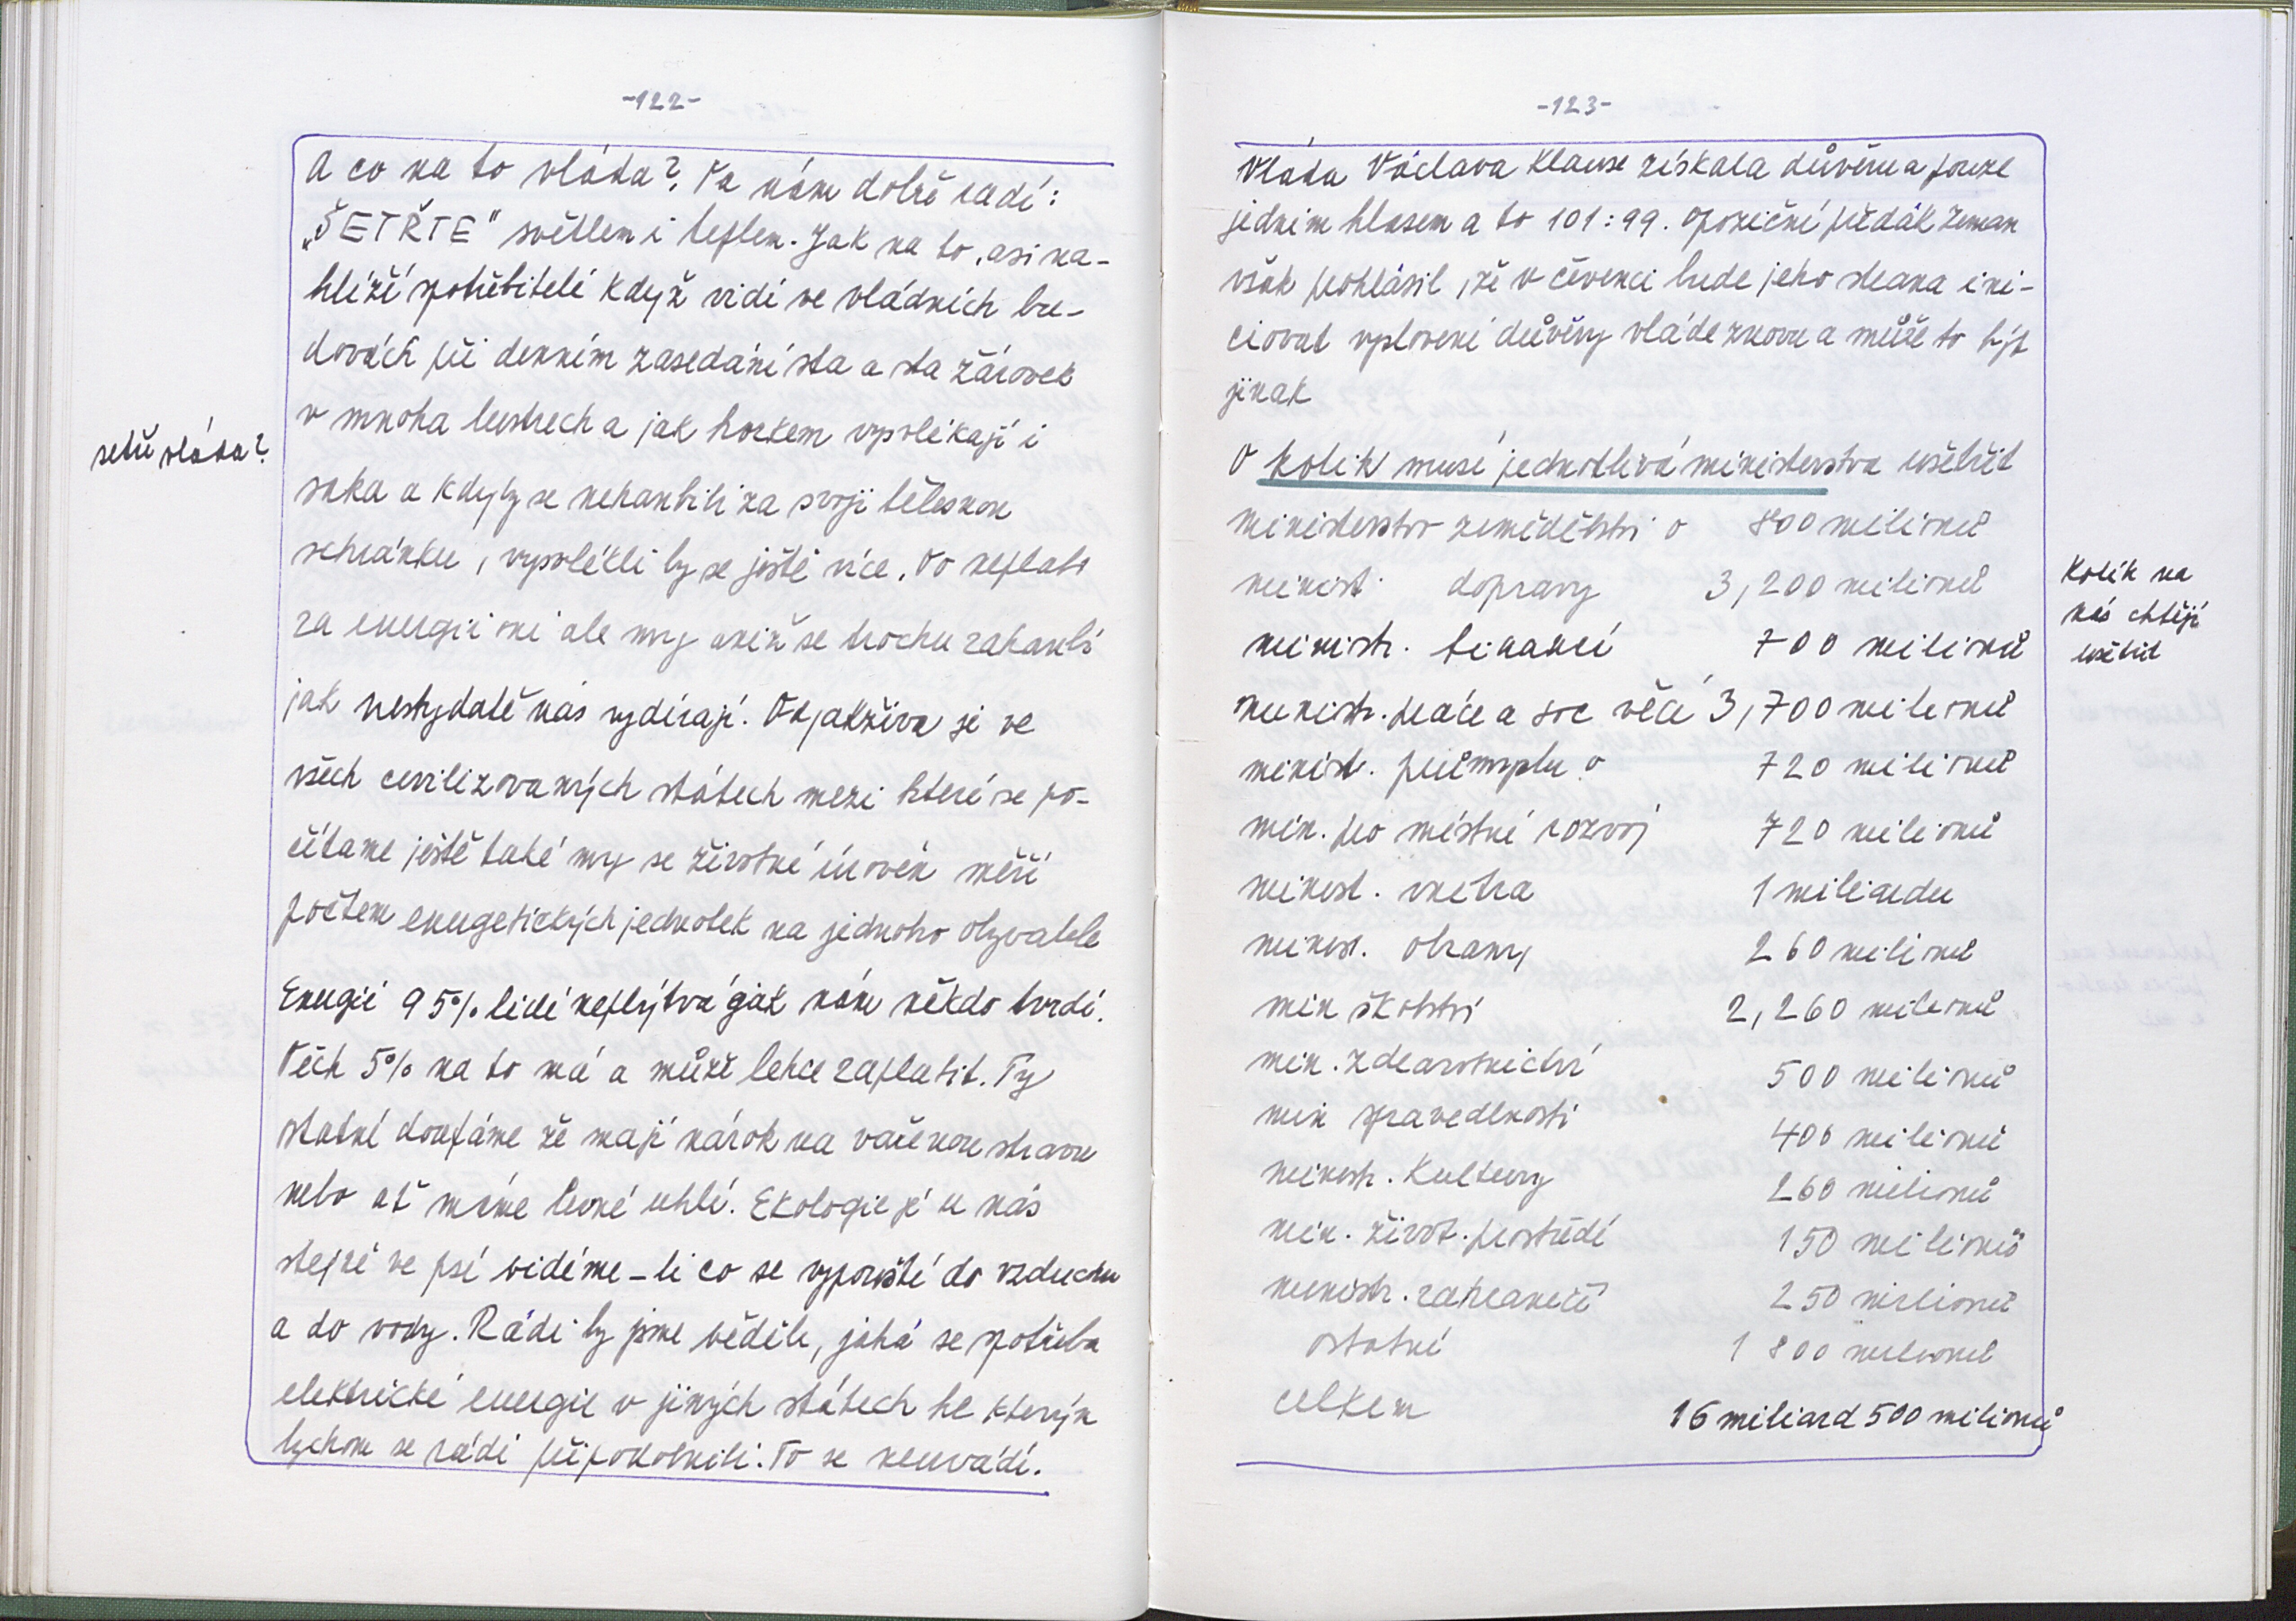 -122-
A co na to vláda? Ta nám dobře radí:
„ŠETŘTE" světlem i teplem. Jak na to, asi na-
hlíží spotřebitelé když vidí ve vládních bu-
dovách při denním zasedání sta a sta žárovek
v mnoha lustrech a jak horkem vysvlékají i
šetří vláda?
saka a kdyby se nehanbili za svoji tělesnou
schránku, vysvlékli by se ještě více. To neplatí
za energii oni ale my aniž se trochu zahanbí
jak nestydatě nás vydírají. Odjakživa si ve
všech civilizovaných státech mezi které se po-
čítame ještě také my se životné úroveň měří
počtem energetických jednotek na jednoho obyvatele
Energií 95% lidí neplýtvá jak nám někdo tvrdí.
Těch 5% na to má a může lehce zaplatit. Ty
statní doufáme že mají nárok na vařenou stravu
nebo ať máme levné uhlí. Ekologie jé u nás
stejně ve psí vidíme-li co se vypouští do vzduchu
a do vody. Rádi by jsme věděli, jaká se spotřeba
elektrické energie v jiných státech ke kterým
bychom se rádi připodobnili. To se neuvádí.
-123-
Vláda Václava Klause získala důvěru a pouze
jedním hlasem a to 101:99. Opoziční předák Zeman
však prohlásil, že v červenci bude jeho strana ini-
ciovat vyslovení důvěry vládě znovu a může to být
jinak
O kolik musí jednotlivá ministerstva ušetřit
ministerstvo zemědělství o 800 milionů
minist. dopravy 3,200 milionů
ministr. financí 700 milionů
ministr. práce a soc věcí 3,700 milionů
minist. průmyslu o 720 milionů
min. pro místní rozvoj 720 milionů
minist. vnitra 1 miliardu
minist. obrany 260 milionů
min školství 2,260 milionů
min. zdravotnictví 500 milionů
min spravedlnosti 400 milionů
ministr. Kultury 260 milionů
min. život. prostředí 150 milionů
ministr. zahraničí 250 milionů
ostatní 1 800 milionů
celkem 16 miliard 500 milionů
Kolik na
nás chtějí
ušetřit